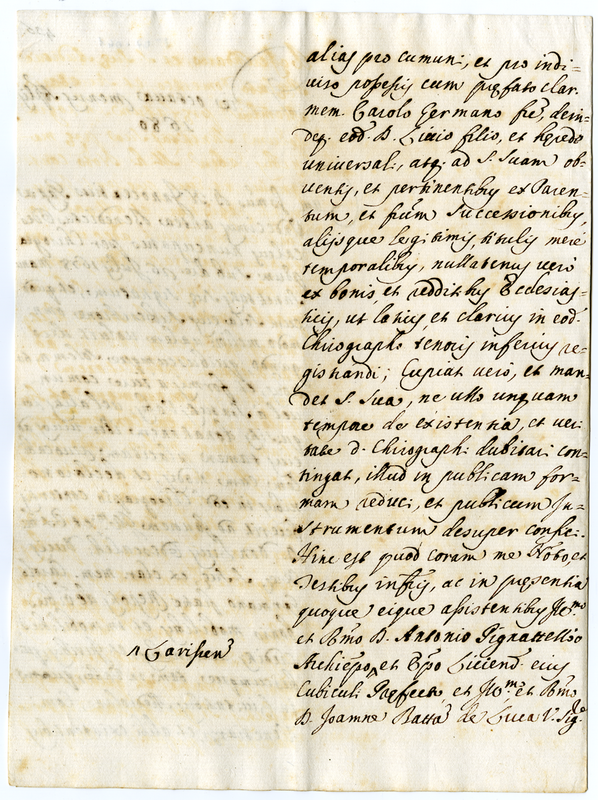 alias pro cumuni, et pro indi=
viso possessis cum præfato clar.
mem. Carolo Germano fre, dein=
deq. eod. D. Livio filio, et hærede
universali, atq. ad S. Suam ob=
ventis, et pertinentibus ex Paren=
tum, et frũm Successionibus,
alijsque legitimis, titulis mere
temporalibus, nullatenus vero
ex bonis, et redditibus Ecclesias=
ticis, ut latius, et clarius in eod.
Chirographo tenoris inferius re=
gistrandi; Cupiat vero, et man=
det S. Sua, ne ullo unquam
tempore de existentia, et veri
tate d. Chirographi dubitari con=
tingat, illud in publicam for=
mam reduci, et publicum In=
strumentum desuper confici.
Hinc est quod coram me Notro, et
Testibus infrîs, ac in præsentia
quoque eique assistentibus Illmo
et Rmo D. Antonio Pignattello
Archiepo, et Epo Liciend. eius
Cubiculi ^ Præfecto et Illm. et Rmo
D. Joanne Batta de Luca V. Sig.
^ Larissen